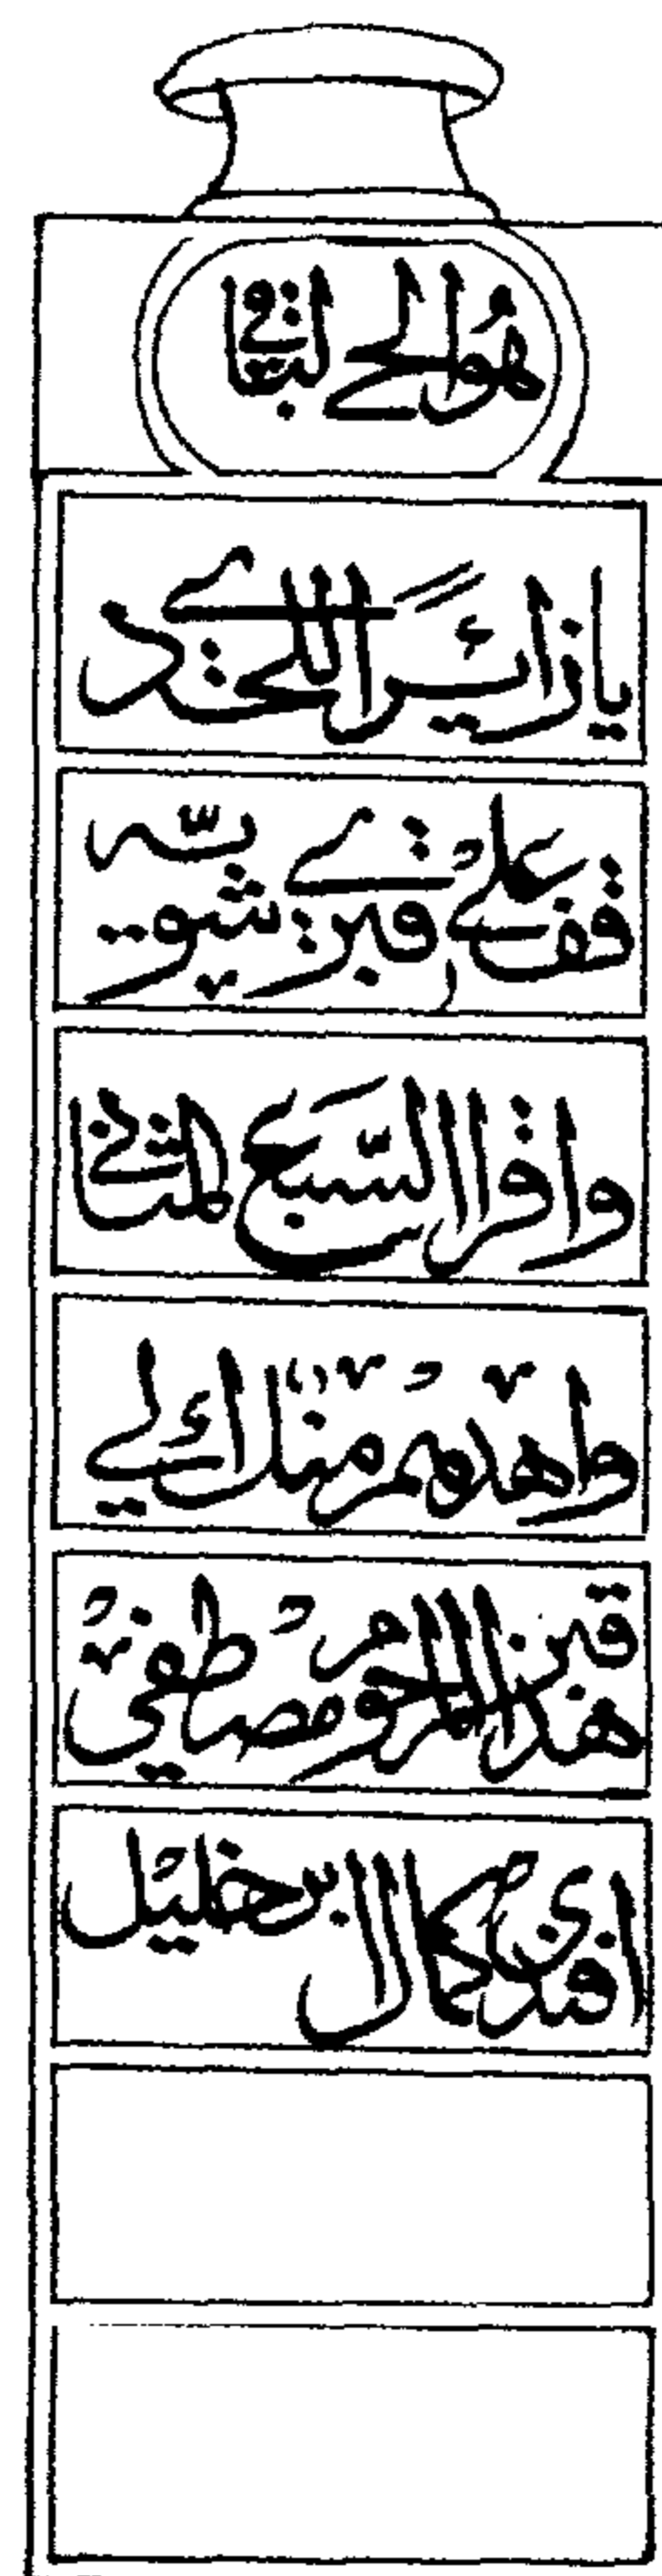 هو الحي الباقي
يا زائرا لحدي
قف على قبري شويه
واقرا السبع المثاني
واهدهم منك الي
قبر هذا المرحوم مصطفى
افندي كمال ابن خليل